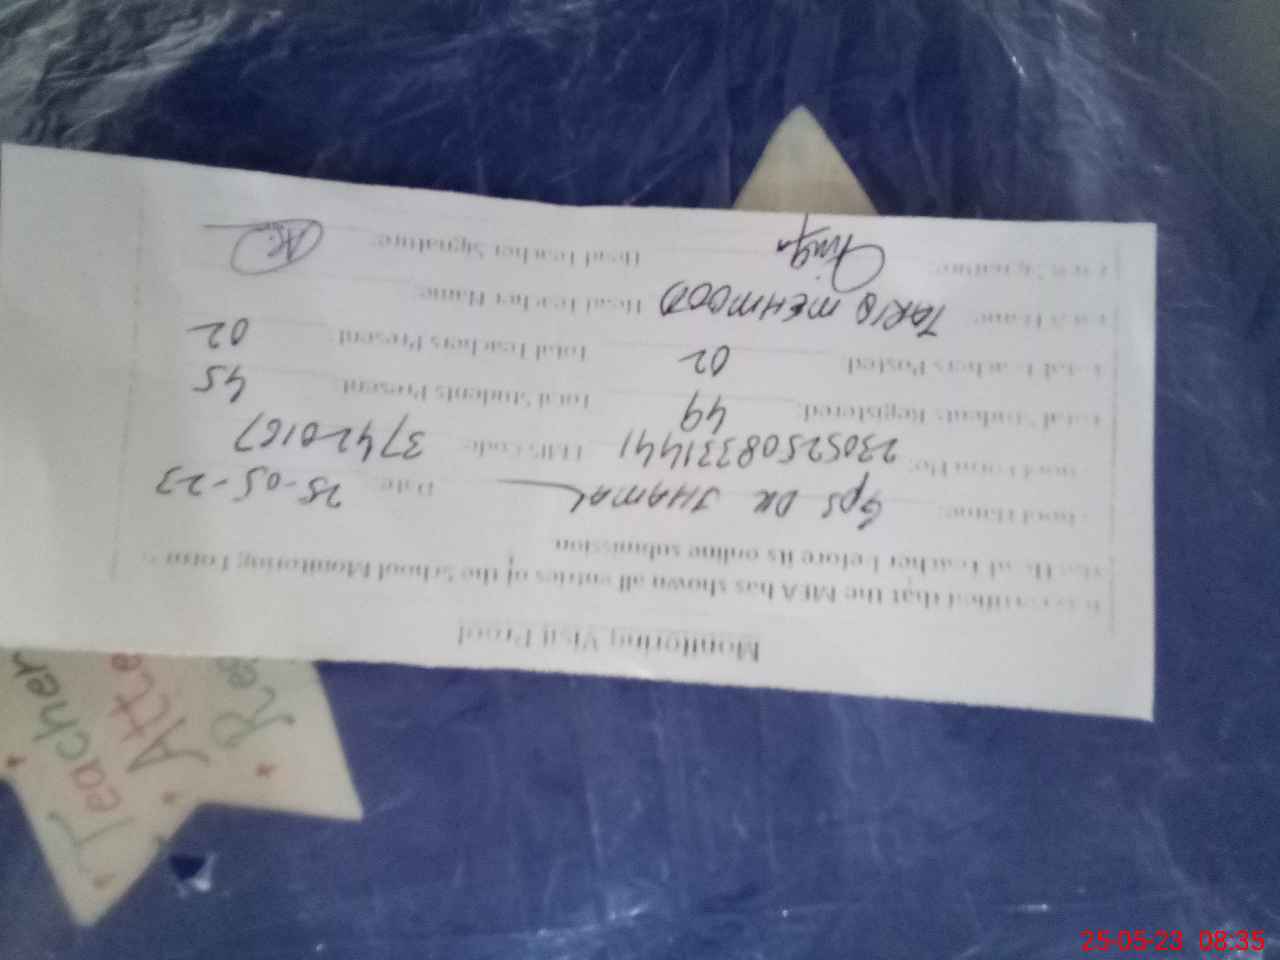 Monitoring Visit Proof
It is certified that the MEA has shown all entries of the School Monitoring Form
Head Teacher before its online submission.
School Name: GPS DK JHAMAL Date: 25-05-23
Form No: 2305250831441 EMIS Code: 37420167
Total Students Registered: 49 Total Students Present: 45
Total Teachers Posted: 02 Total Teachers Present: 02
MEA Name: TARIQ MEHMOOD Head Teacher Name:
MEA Signature: Head Teacher Signature:
Teacher
Atte
Re
25-05-23 08:35